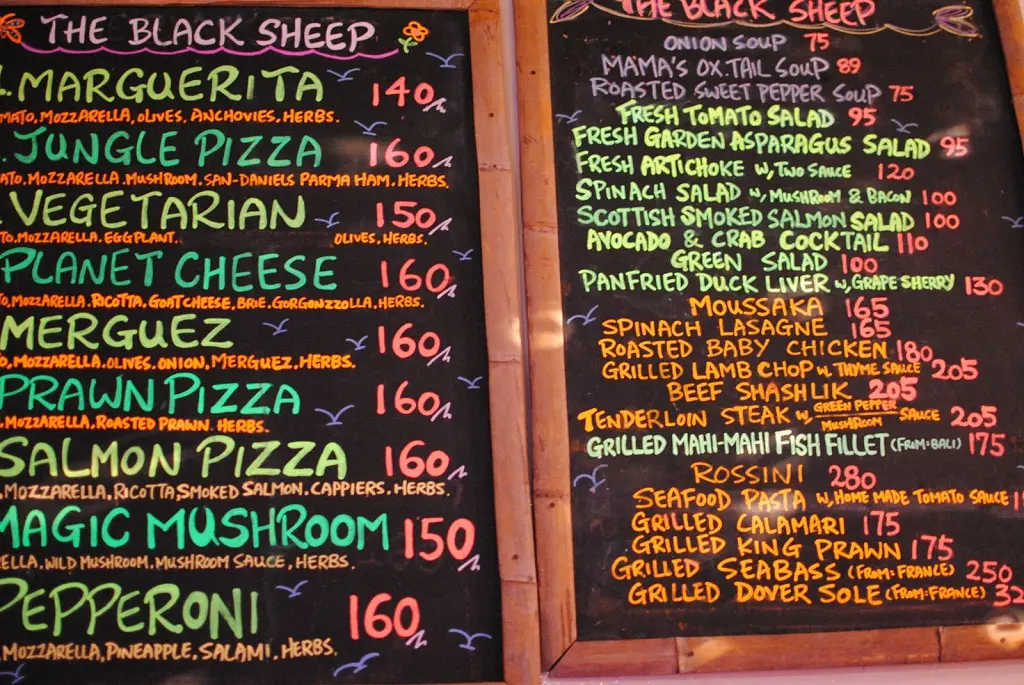 THE BLACK SHEEP
MARGUERITA 140
MOZZARELLA, OLIVES, ANCHOVIES, HERBS.
JUNGLE PIZZA 160
MOZZARELLA. MUSHROOM. SAN-DANIELS PARMA HAM. HERBS.
VEGETARIAN 150
MOZZARELLA. EGGPLANT. OLIVES, HERBS.
PLANET CHEESE 160
MOZZARELLA. RICOTTA, GOATCHEESE, BRIE, GORGONZZOLLA. HERBS.
MERGUEZ 160
MOZZARELLA. OLIVES. ONION, MERGUEZ. HERBS.
PRAWN PIZZA 160
MOZZARELLA, ROASTED PRAWN. HERBS.
SALMON PIZZA 160
MOZZARELLA, RICOTTA, SMOKED SALMON. CAPPIERS. HERBS.
MAGIC MUSHROOM 150
WILD MUSHROOM. MUSHROOM SAUCE, HERBS.
PEPPERONI 160
MOZZARELLA, PINEAPPLE, SALAMI. HERBS.
THE BLACK SHEEP
ONION SOUP 75
MAMA'S OX.TAIL SOUP 89
ROASTED SWEET PEPPER SOUP 75
FRESH TOMATO SALAD 95
FRESH GARDEN ASPARAGUS SALAD 95
FRESH ARTICHOKE W, TWO SAUCE 120
SPINACH SALAD W, MUSHROOM & BACON 100
SCOTTISH SMOKED SALMON SALAD 100
AVOCADO & CRAB COCKTAIL 110
GREEN SALAD 100
PANFRIED DUCK LIVER W, GRAPE SHERRY 130
MOUSSAKA 165
SPINACH LASAGNE 165
ROASTED BABY CHICKEN 180
GRILLED LAMB CHOP W, THYME SAUCE 205
BEEF SHASHLIK 205
TENDERLOIN STEAK W, GREEN PEPPER MUSHROOM SAUCE 205
GRILLED MAHI-MAHI FISH FILLET (FROM:BALI) 175
ROSSINI 280
SEAFOOD PASTA W, HOME MADE TOMATO SAUCE
GRILLED CALAMARI 175
GRILLED KING PRAWN 175
GRILLED SEABASS (FROM:FRANCE) 250
GRILLED DOVER SOLE (FROM:FRANCE)